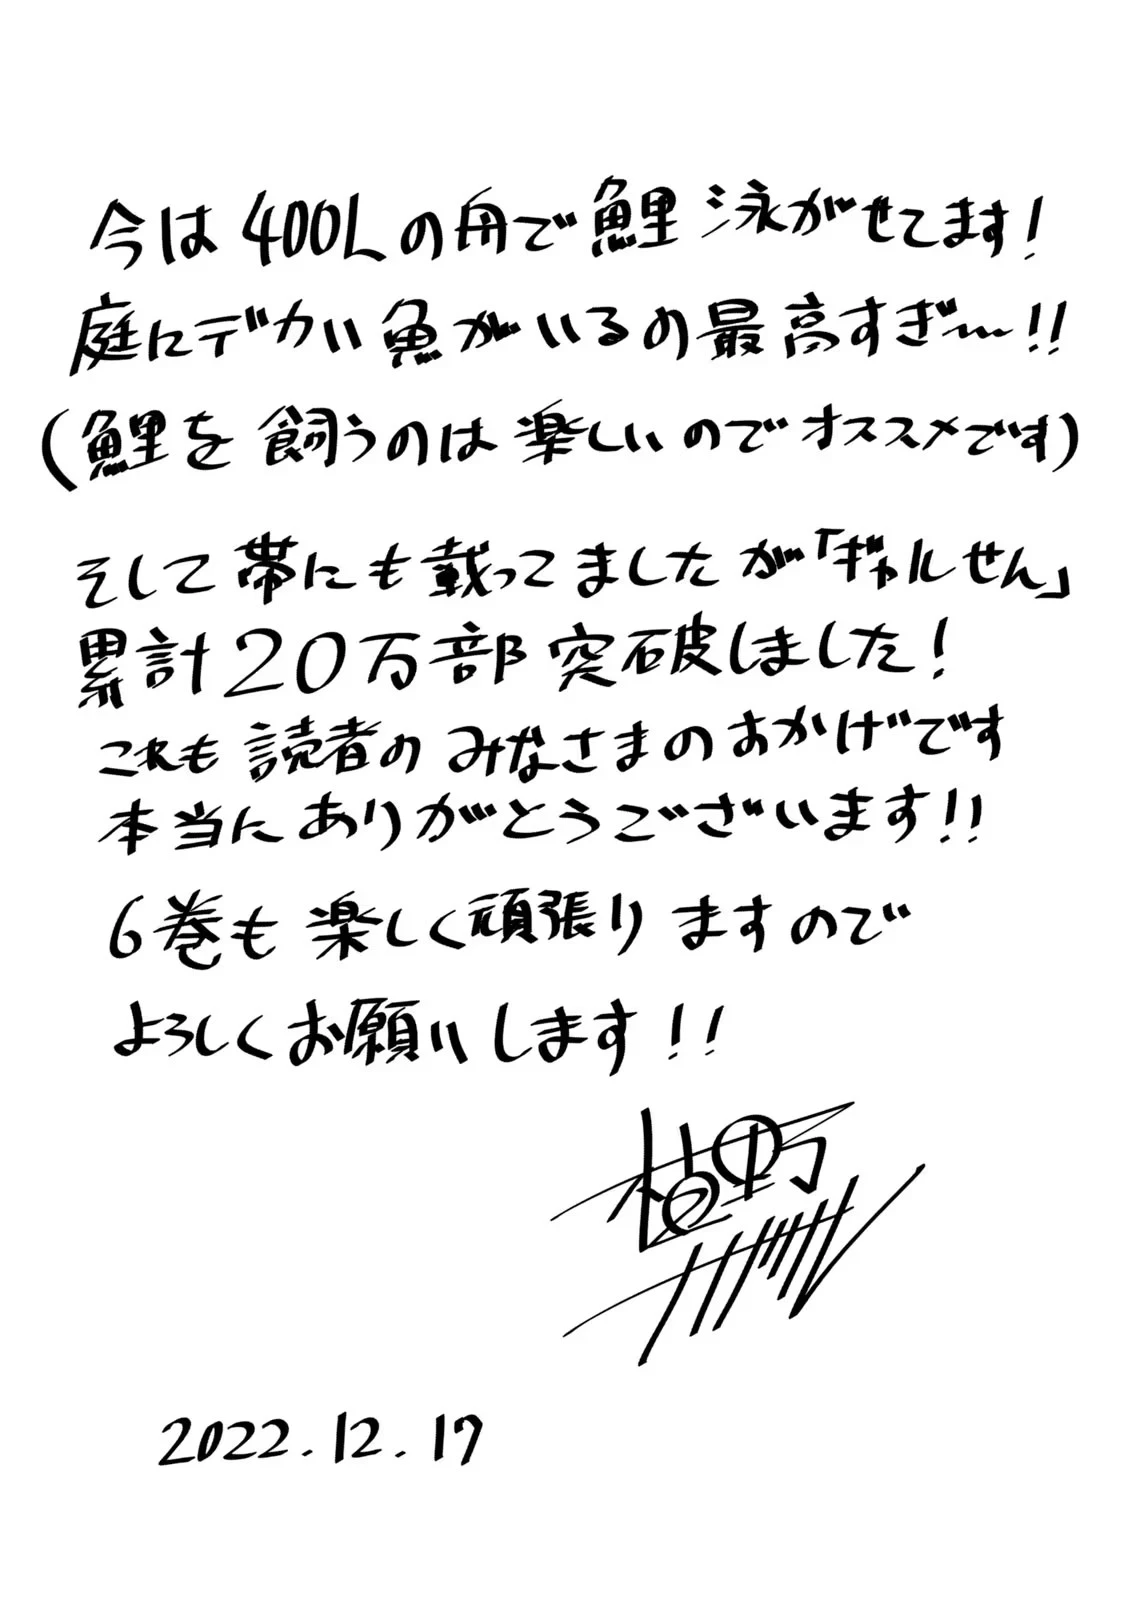 今は400Lの舟で鯉泳がせてます!
庭にデカい魚がいるの最高すぎ〜!!
(鯉を飼うのは楽しいのでオススメです)
そして帯にも載ってましたが「ギャルせん」
累計20万部突破しました!
これも読者のみなさまのおかげです
本当にありがとうございます!!
6巻も楽しく頑張りますので
よろしくお願いします!!
2022.12.17